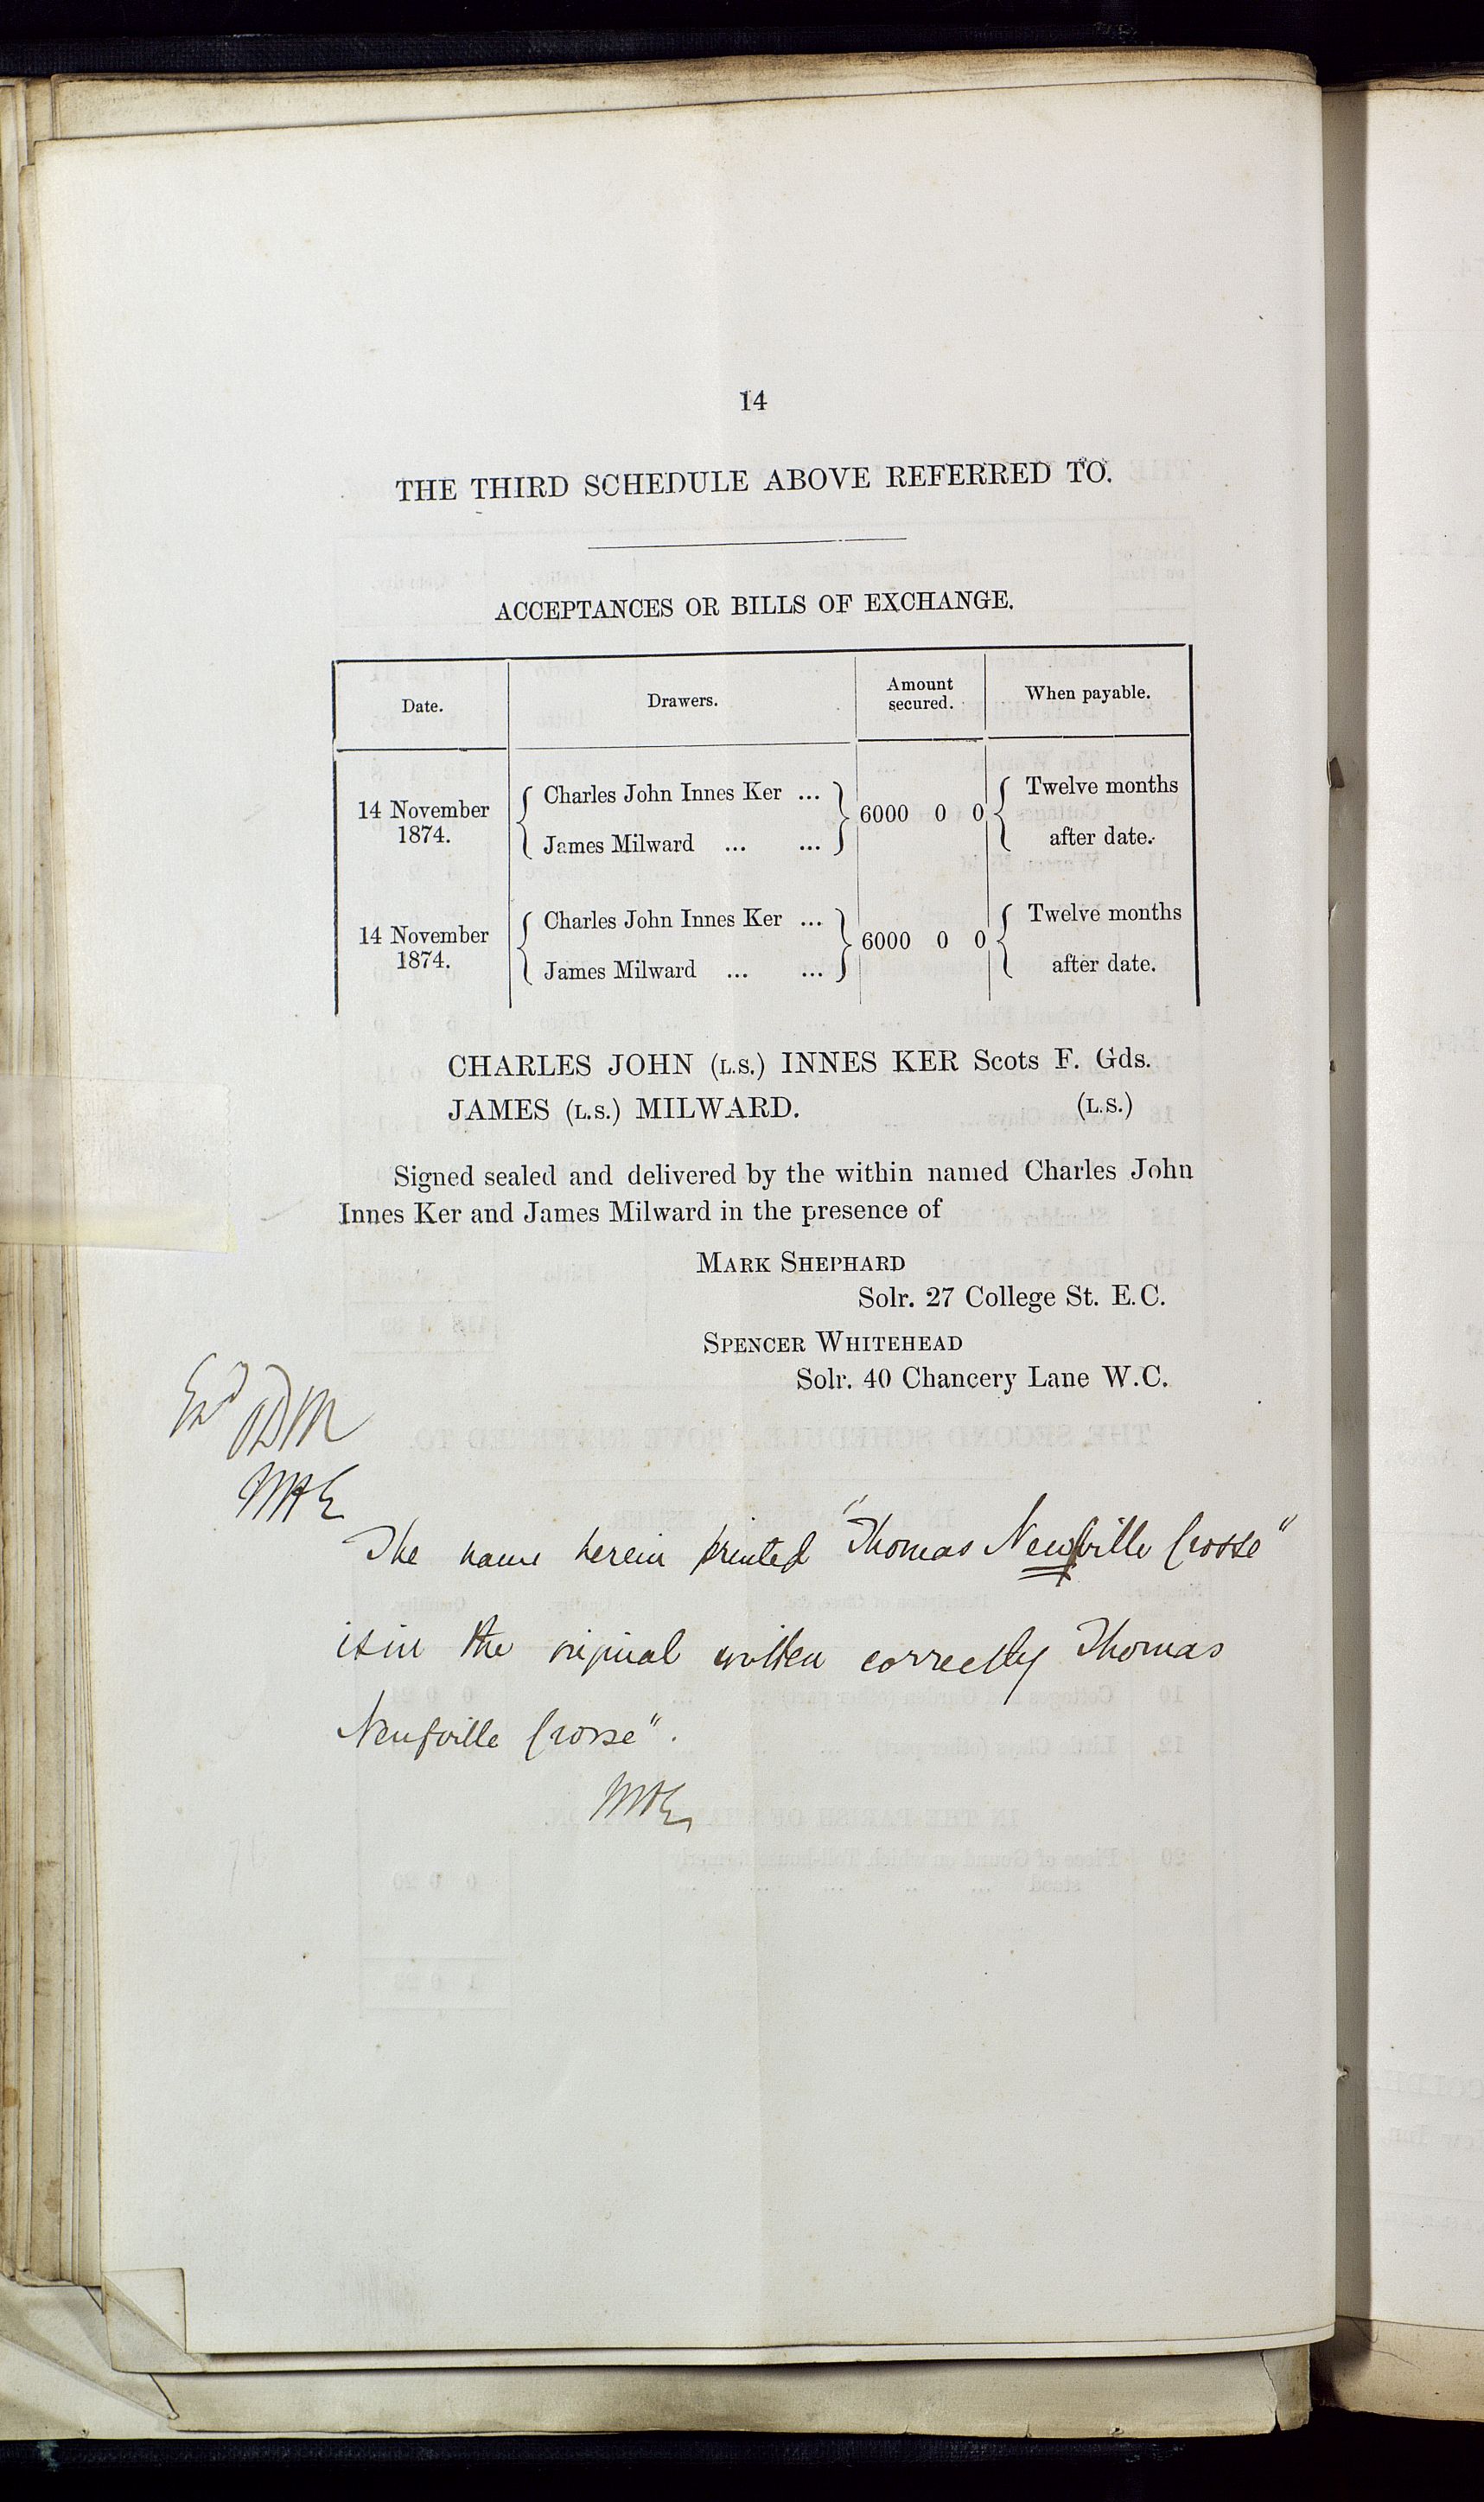 14
THE THIRD SCHEDULE ABOVE REFERRED TO.
ACCEPTANCES OR BILLS OF EXCHANGE.
Date. Drawers. Amount secured. When payable.
14 November 1874. Charles John Innes Ker ... James Milward ... ... 6000 0 0 Twelve months after date.
14 November 1874. Charles John Innes Ker ... James Milward ... ... 6000 0 0 Twelve months after date.
CHARLES JOHN (L.S.) INNES KER Scots F. Gds.
JAMES (L.S.) MILWARD. (L.S.)
Signed sealed and delivered by the within named Charles John
Innes Ker and James Milward in the presence of
MARK SHEPHARD
Solr. 27 College St. E.C.
SPENCER WHITEHEAD
Solr. 40 Chancery Lane W.C.
The name herein printed "Thomas Newville Crosse"
is in the original written correctly Thomas
Neufville Crosse".